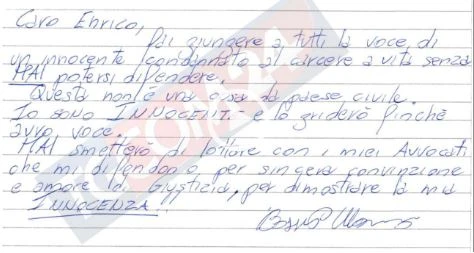 Caro Enrico,
fai giungere a tutti la voce di
un innocente condannato al carcere a vita senza
MAI potersi difendere.
Questa non è una cosa da paese civile.
Io sono INNOCENTE e lo griderò finchè
avrò voce.
MAI smetterò di lottare con i miei Avvocati
che mi difendono per sincera convinzione
e amore di Giustizia, per dimostrare la mia
INNOCENZA.